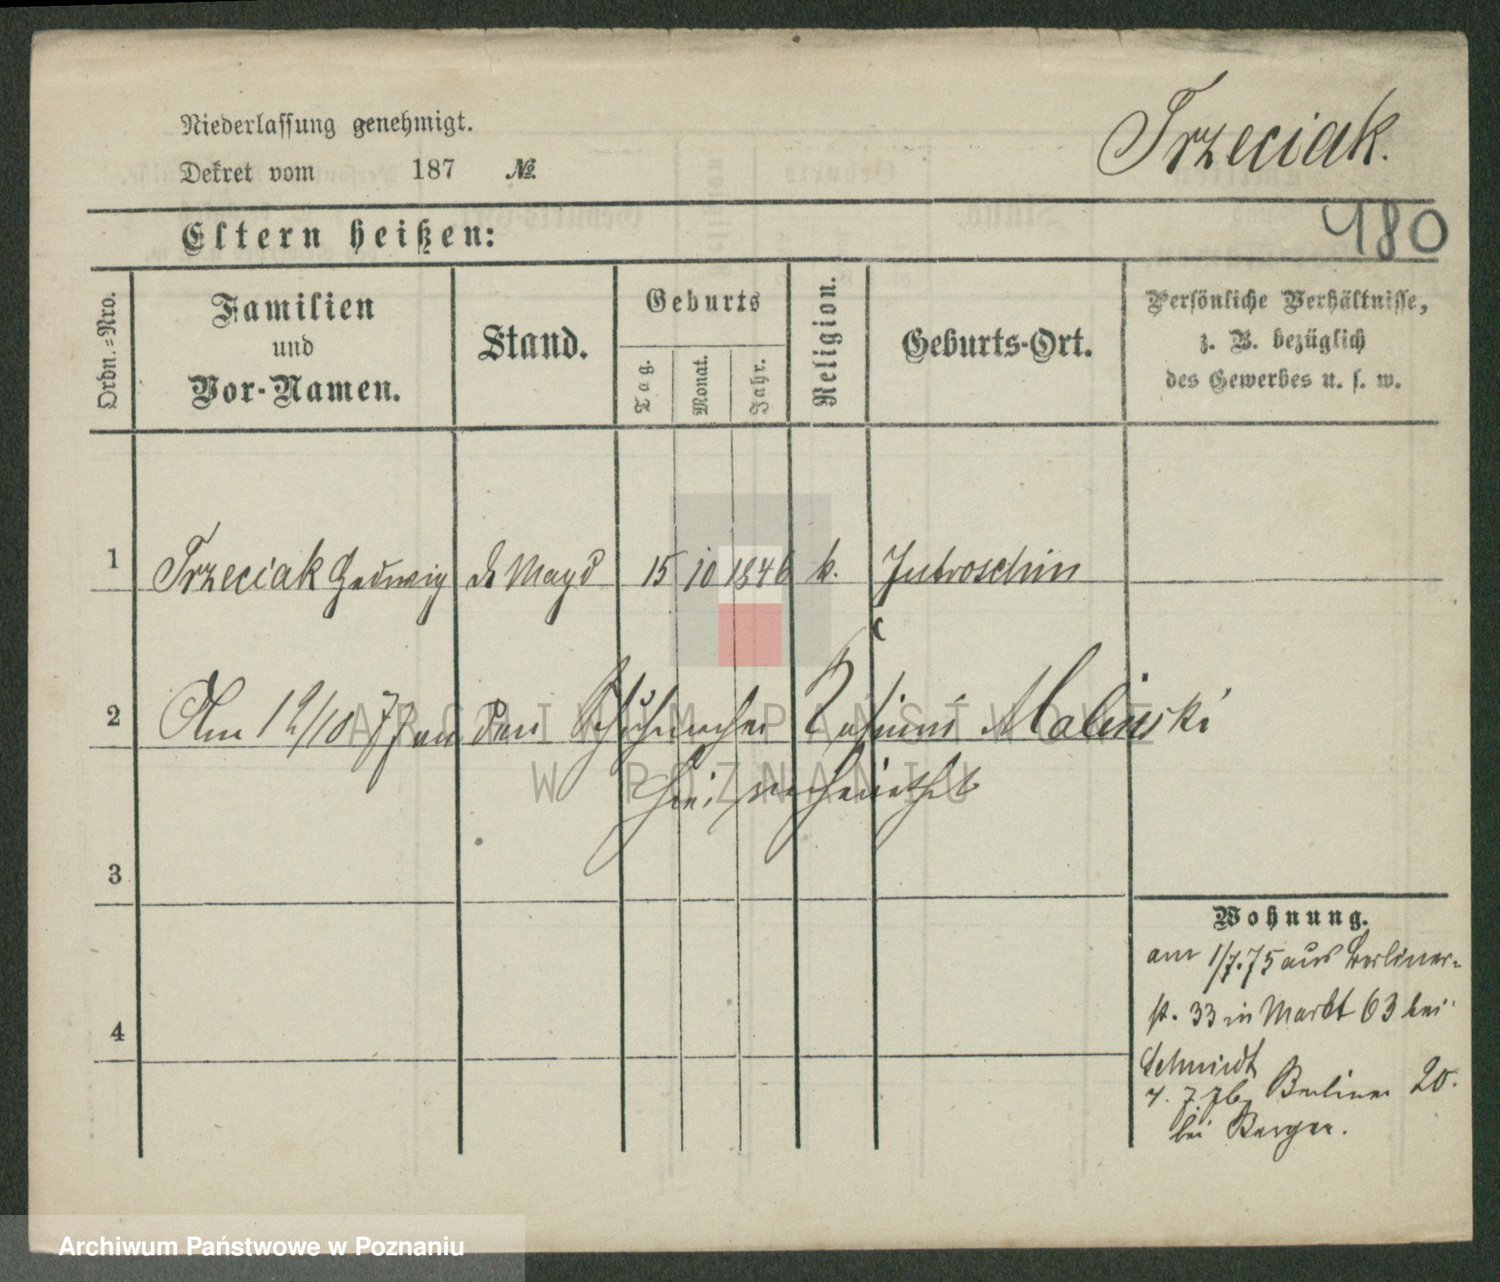 Niederlassung genehmigt.
Dekret vom 187 №
Trzeciak.
980
Eltern heißen:
Ordn.=Nro.
Familien
und
Vor-Namen.
Stand.
Geburts
Tag.
Monat.
Jahr.
Religion.
Geburts-Ort.
Persönliche Verhältnisse,
z. B. bezüglich
des Gewerbes u. s. w.
1 Trzeciak Hedwig d Magd 15 10 1846 k. Jutroschin
2 Am 19/10 77 an den Schuhmacher Malinski
hier verheirathet
3
4
Wohnung.
am 1/7.75 aus Berliner-
st. 33 in Markt 63 bei
Schmidt
7. 76. Berliner 20.
bei Berger.
ARCHIWUM PAŃSTWOWE
W POZNANIU
Archiwum Państwowe w Poznaniu